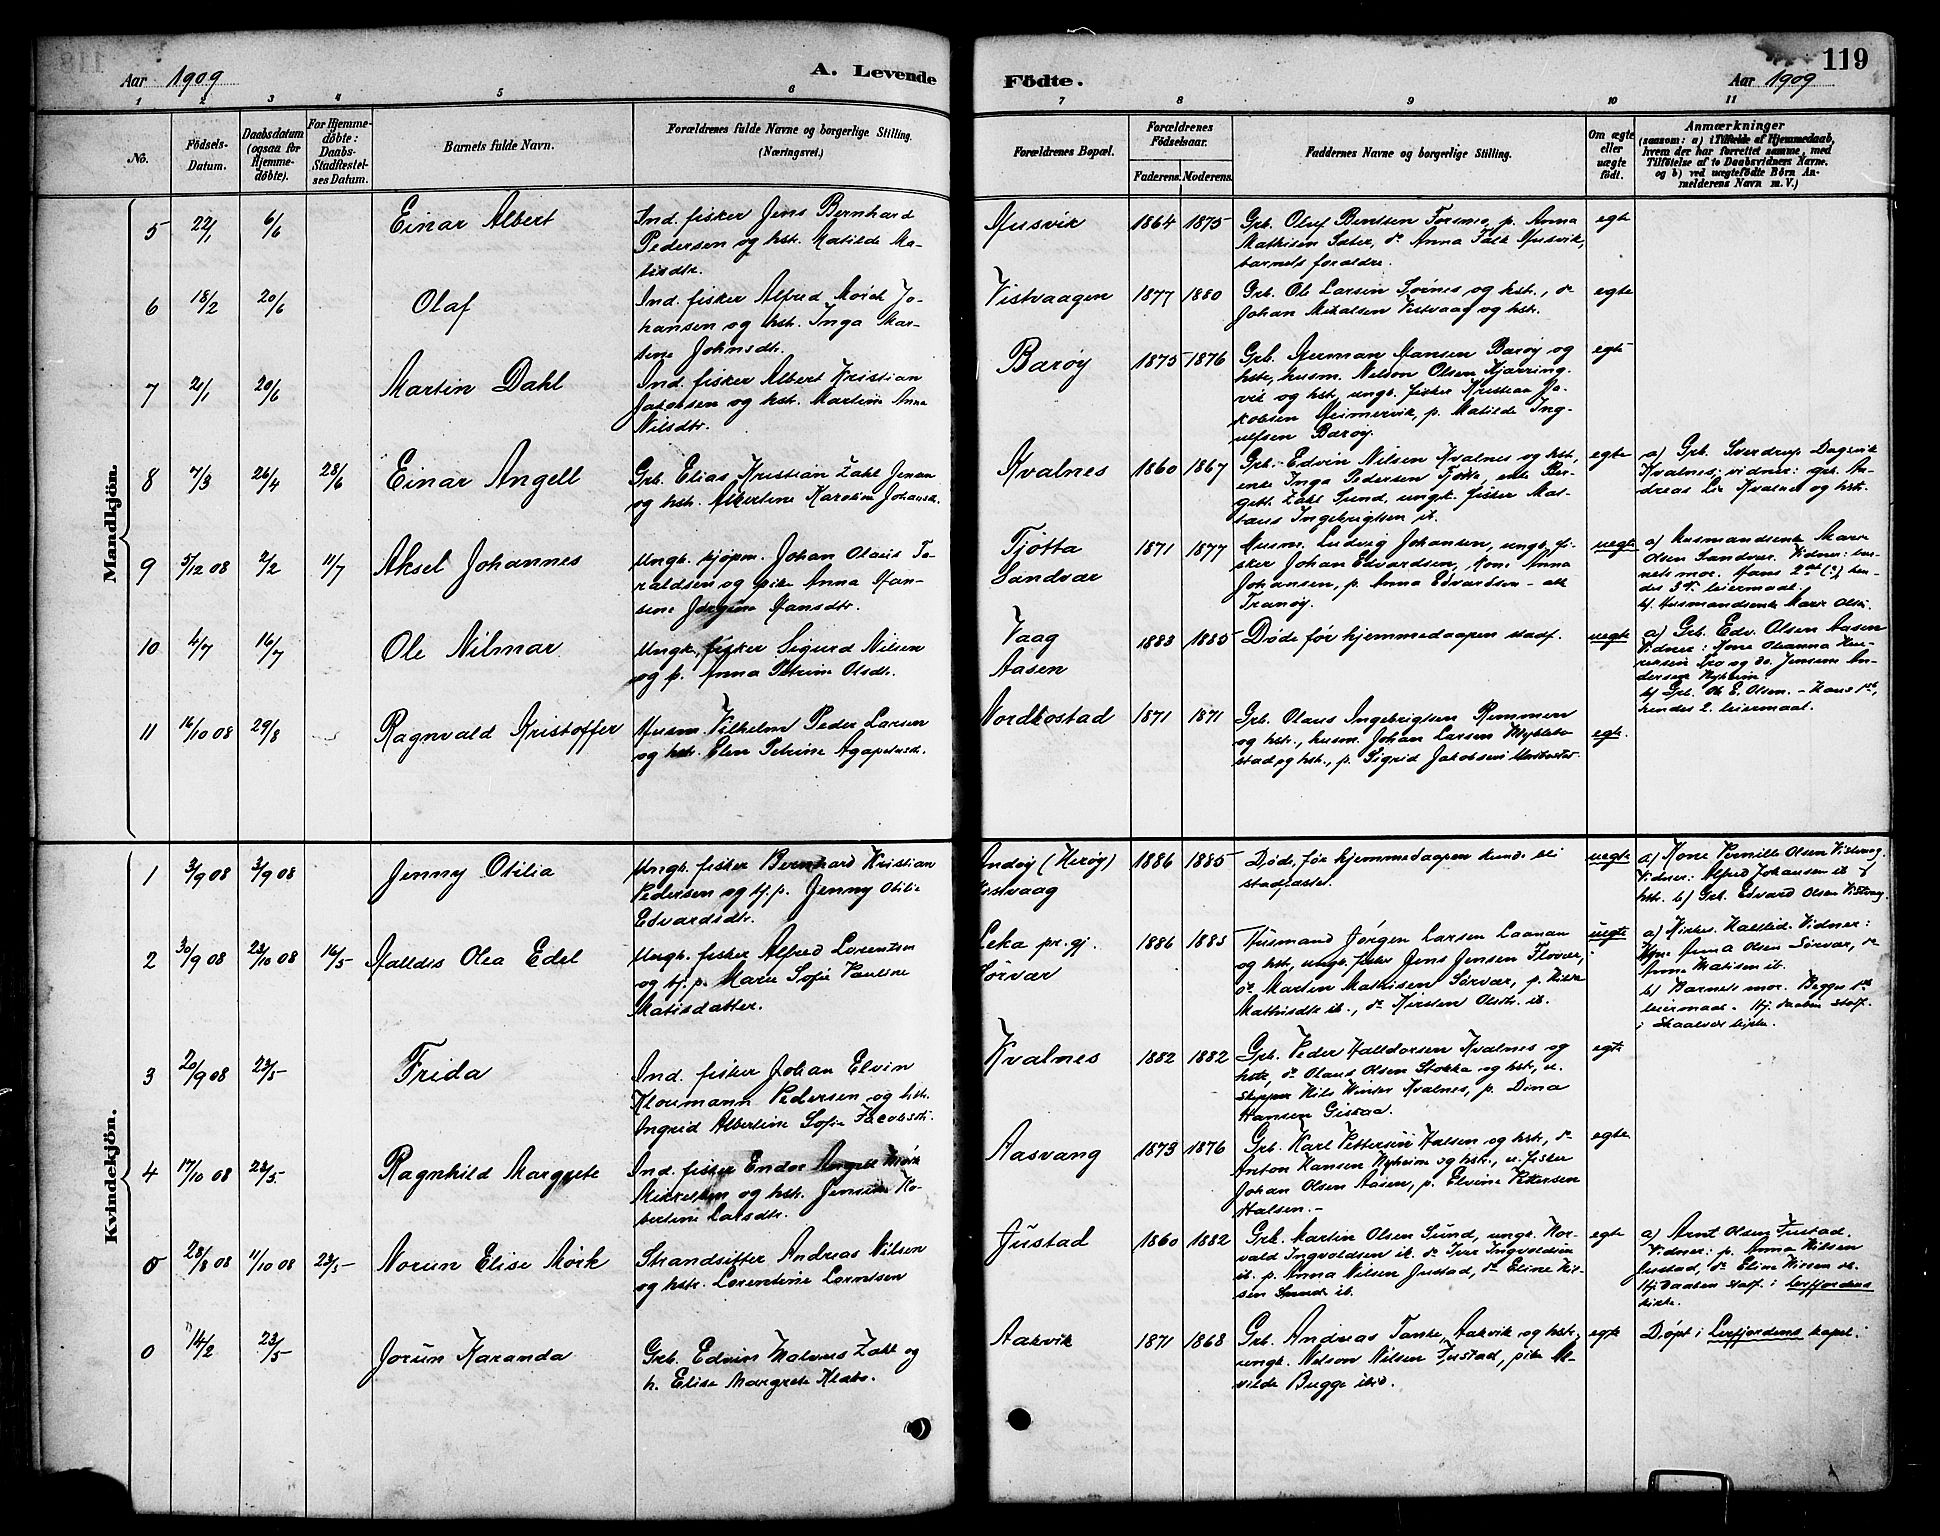 119
Aar 1909
A. Levende
Födte.
Aar 1909
1 2 3 4 5 6 7 8 9 10 11
No.
Födsels-
Datum.
Daabsdatum
(ogsaa for
Hjemme-
døbte).
For Hjemme-
døbte:
Daabs-
Stadfæstel-
ses Datum.
Barnets fulde Navn.
Forældrenes fulde Navne og borgerlige Stilling.
(Næringsvei.)
Forældrenes Bopæl.
Forældrenes
Födselsaar.
Faderens. Moderens.
Faddernes Navne og borgerlige Stilling.
Om ægte
eller
uægte
födt.
Anmærkninger
(saasom: a) i Tilfælde af Hjemmedaab,
hvem der har forrettet samme, med
Tilföielse af to Daabsvidners Navne,
og b) ved uægtefödte Börn An-
melderens Navn m. V.)
Mandkjön.
5 22/1 6/6 Einar Albert
Ind. fisker Jens Bernhard
Pedersen og hst. Matilde Ma-
Husvik 1864 1875
Grb. Oluf Bentsen Forsmo, p. Anna
Mathisen Sæter, do Anna Falk Husvik,
barnets forældre.
egte
6 18/2 20/6 Olaf
Ind. fisker Alfred Mörch Jo-
hansen og hst. Inga Mar-
Johnsdtr.
Vistvaagen 1877 1880
Grb. Ole Larsen Sörnes og hst., do
Johan Mikalsen Vistvaag og hst.
egte
7 2/1 20/6 Martin Dahl
Ind. fisker Albert Kristian
Jakobsen og hst. Martine Anna
Nilsdtr.
Baröy 1875 1876
Grb. Herman Hansen Baröy og
hst, husm. Nelson Olsen Kjærring-
vik og hst, ungk. fisker Kristian Ja-
kobsen Heimervik, p. Matilde Ing-
Baröy.
egte
8 7/3 26/4 28/6 Einar Angell
Grb. Elias Kristian Zahl Jensen
og hst. Albertine Karoline Johansdt.
Kvalnes 1860 1867
Grb. Edvin Nilsen Kvalnes og hst,
enke Inga Pedersen Tjötta, enke Ber-
Zahl Sund, ungk. fisker Mat-
Ingebrigtsen ib.
egte
a) Grb. Sverdrup Dagsvik
Kvalnes; vidner: grb. An-
dreas Kvalnes og hst.
9 5/12 08 2/2 11/7 Aksel Johannes
Ungk. kjøpm. Johan Olaus Ta-
raldsen og pike Anna Han-
sine Jørgine Hansdtr.
Tjötta
Sandvær
1871 1877
Husm. Ludvig Johansen, ungk. fi-
sker Johan Edvardsen, Kone Anna
Johansen, p. Anna Edvardsen – alle
Tranöy.
uegte
a) Husmandsenke Mari
Olsen Sandvær. Vidner: bar-
nets mor. Hans 2det (?), hen-
des 3die leiermaal.
b) Husmandsenke Mari Olsen
10 4/7 16/7 Ole Nilmar
Ungk. fisker Sigurd Nilsen
og p. Anna Petrine Olsdtr.
Vaag
Aasen
1883 1885
Døde før hjemmedaapen stadf.
uegte
a) Grb. Edv. Olsen Aasen
Vidner: Kone Oleanna Hen-
riksen Tro og do. Jensine An-
dersen Nyheim.
b) Grb. Ole E. Olsen. – Hans 1ste,
hendes 2. leiermaal.
11 16/10 08 29/8 Ragnvald Kristoffer
Husm. Vilhelm Peder Larsen
og hst. Elen Petrine Agapetusdt.
Nordkostad 1871 1871
Grb. Olaus Ingebrigtsen Remmen
og hst., husm. Johan Larsen Myklebo-
stad og hst., p. Sigrid Jakobsen
egte.
Kvindekjön.
1 3/9 08 3/9 08 Jenny Otilia
Ungk. fisker Bernhard Kristian
Pedersen og tj. p. Jenny Otilie
Edvardsdtr.
Andöy (Heröy)
Vistvaag
1886 1885
Døde før hjemmedaapen kunde bli
stadfæstet.
uegte
a) Kone Pernille Olsen Vistvaag.
Vidner: Alfred Johansen ib og
hst. b) Grb. Edvard Olsen Vistvaag
2 30/9 08 23/10 08 16/5 Halldis Olea Edel
Ungk. fisker Alfred Lorentsen
og tj. p. Marie Sofie Pauline
Matisdatter.
Leka pr. gj.
Sörvær
1886 1885
Husmand Jörgen Larsen Laanan
og hst, ungk. fisker Jens Jensen Flovær,
do Marten Mathisen Sörvær, p.
Mathisdtr ib., do Kirsten Olsdtr. ib.
uegte
a) Kirkes. Vidner:
Kone Anna Olsen Sörvær, do
Anna Matisen ib.
b) Barnets mor. Begges 1ste
leiermaal. Hj. daaben stadf.
i Skaalvær kirke.
3 20/9 08 23/5 Frida
Ind. fisker Johan Elvin
Kloumann Pedersen og hst.
Ingrid Albertine Sofie Jacobsdtr.
Kvalnes 1882 1882
Grb. Peder Halldorsen Kvalnes og
hst, do Olaus Olsen Stokka og hst, u.
skipper Nils Winter Kvalnes, p. Dina
Hansen
egte
4 17/10 08 23/5 Ragnhild Margrete
Ind. fisker Endor Angell Mörk
Mikkelsen og hst. Jensine Ho-
bertine Larsdtr.
Aasvang 1873 1876
Grb. Karl Pettersen Halsen og hst, do
Anton Hansen Nyheim og hst., u. fisker
Johan Olsen Aasen, p. Elvine Pettersen
Halsen. –
egte
0 28/8 08 11/10 08 23/5 Norun Elise Mörk
Strandsitter Andreas Nilsen
og hst. Lorentine Lorntsen
Justad 1860 1882
Grb. Martin Olsen Sund, ungk. Nor-
vald Ingvoldsen ib. do Iver Ingvoldsen
ib. p. Anna Nilsen Justad, do Eline Nil-
sen Sund ib.
egte
a) Arnt Olsen Justad.
Vidner: p. Anna Nilsen
Justad, do Eline Nilsen ib.
Hj. daaben stadf. i Leirfjordens
kirke.
0 14/2 23/5 Jorun Karanda
Grb. Edvin Halvers Zahl og
h. Elise Margrete Klabo.
Aakvik 1871 1868
Grb. Andreas Tanke, Aakvik og hst.,
ungk. Nilson Nilsen Justad, pike Al-
vilde Bugge ibid.
egte
Døpt i Leirfjordens kapel.